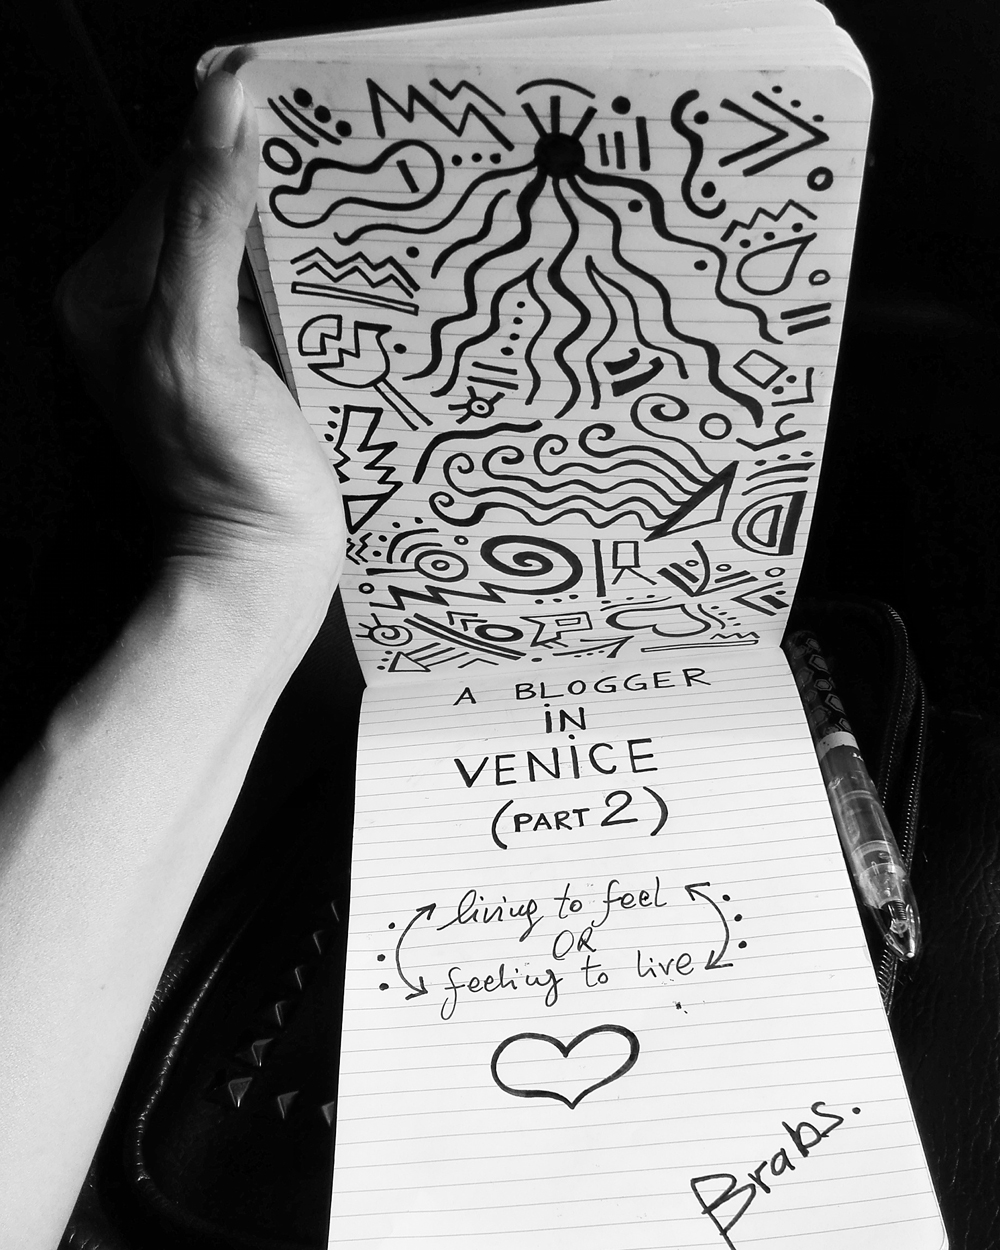 A BLOGGER
iN
VENiCE
(PART 2)
living to feel
OR
feeling to live
Brabs.